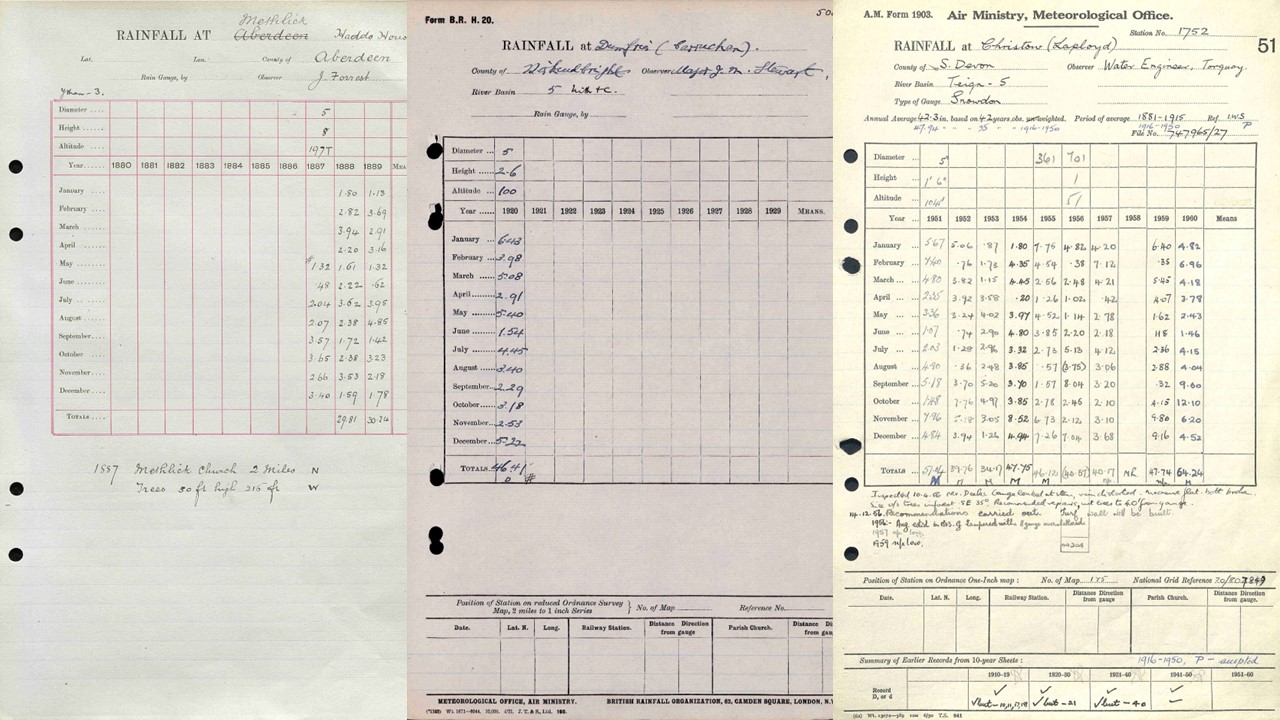 Methlick
RAINFALL AT Aberdeen Haddo Hous
Lat. Lon. County of Aberdeen
Rain Gauge, by Observer J. Forrest
Diameter .... 5
Height ..... 8
Altitude .... 197 T
Year..... 1880 1881 1882 1883 1884 1885 1886 1887 1888 1889 MEA
January .... 1.50 1.13
February .... 2.82 3.69
March .... 3.94 2.91
April .... 2.20 3.16
May .... 1.32 1.61 1.32
June .... .48 .62
July .... 2.04 3.62 3.95
August .... 2.07 2.38 4.85
September.... 3.57 1.72 1.42
October .... 3.65 2.38 3.23
November .... 2.66 3.53 2.18
December .... 3.40 1.59 1.78
TOTALS .... 29.81
1887 Methlick Church 2 Miles N
Trees 50 ft high 215 ft W
Form B.R. H. 20.
RAINFALL at Dumfries (Carruchan).
County of Kirkcudbright Observer Major J. M. Stewart,
River Basin 5
Rain Gauge, by
Diameter ... 5
Height ... 2.6
Altitude ... 100
Year ...... 1920 1921 1922 1923 1924 1925 1926 1927 1928 1929 MEANS.
January ... 6.43
February ... 3.98
March ... 5.08
April ... 2.91
May ... 5.40
June ... 1.54
July ... 4.45
August ... 3.40
September... 2.29
October ... 3.18
November ... 2.53
December... 5.22
TOTALS. 46.41
Position of Station on reduced Ordnance Survey
Map, 2 miles to 1 inch Series No. of Map Reference No.
Date. Lat. N. Long. Railway Station. Distance Direction from gauge Parish Church.
METEOROLOGICAL OFFICE, AIR MINISTRY. BRITISH RAINFALL ORGANIZATION, 62, CAMDEN SQUARE, LONDON, N.W
A.M. Form 1903. Air Ministry, Meteorological Office.
Station No. 1752
RAINFALL at Christow (Laployd) 51
County of S. Devon Observer Water Engineer, Torquay.
River Basin Teign - 5
Type of Gauge Snowdon
Annual Average 42.3 in. based on 42 years obs. unweighted. Period of average 1881-1915 Ref. I.W.S
47.94 - - 35 - - 1916-1950 1916-1950 P
File No. 747965/27
Diameter ... 5" 361 701
Height ... 1' 6" 1
Altitude ... 51
Year ... 1951 1952 1953 1954 1955 1956 1957 1958 1959 1960 Means
January ... 5.67 5.06 .87 1.80 7.75 4.82 4.20 6.40 4.82
February ... 7.40 .76 1.73 4.35 4.54 .38 7.12 .35 6.96
March ... 4.80 3.82 1.15 4.45 2.56 2.48 4.21 5.45 4.18
April ... 2.35 3.92 3.58 .20 1.26 1.02 .42 4.07 3.78
May ... 3.36 3.24 4.02 3.97 4.52 1.14 2.78 1.62 2.43
June ... 1.07 .74 2.90 4.80 3.85 2.20 2.18 1.18 1.46
July ... 2.03 1.28 2.96 3.32 2.73 5.13 4.12 2.36 4.15
August ... 4.90 .36 2.48 3.85 .57 (3.75) 3.06 2.88 4.04
September ... 5.18 3.70 5.20 3.70 1.57 8.04 3.20 .32 9.60
October ... 1.48 7.76 4.97 3.85 2.78 2.45 2.10 4.15 12.10
November ... 7.96 5.18 3.05 8.52 6.73 2.12 3.10 9.80 6.20
December ... 4.84 3.94 1.26 4.94 7.26 7.04 3.68 9.16 4.52
TOTALS ... 39.76 34.17 47.75 46.12 (40.57) 40.17 NR 47.74 64.24
14.12.56. Recommendations carried out. Turf wall will be built.
1959 n/e low.
Position of Station on Ordnance One-Inch map : No. of Map 175 National Grid Reference
Date. Lat. N. Long. Railway Station. Distance Direction from gauge Parish Church. Distance Direction from gauge.
Summary of Earlier Records from 10-year Sheets : 1916-1950, P - accepted
1910-19 1920-30 1921-40 1941-50 1951-60
Record
D, or d